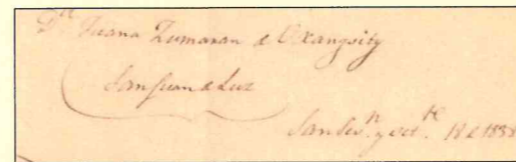 Dª Juana Zumaran de Oxangoity
San Juan de Luz
San Sevⁿ y Oct.ᵉ 18 de